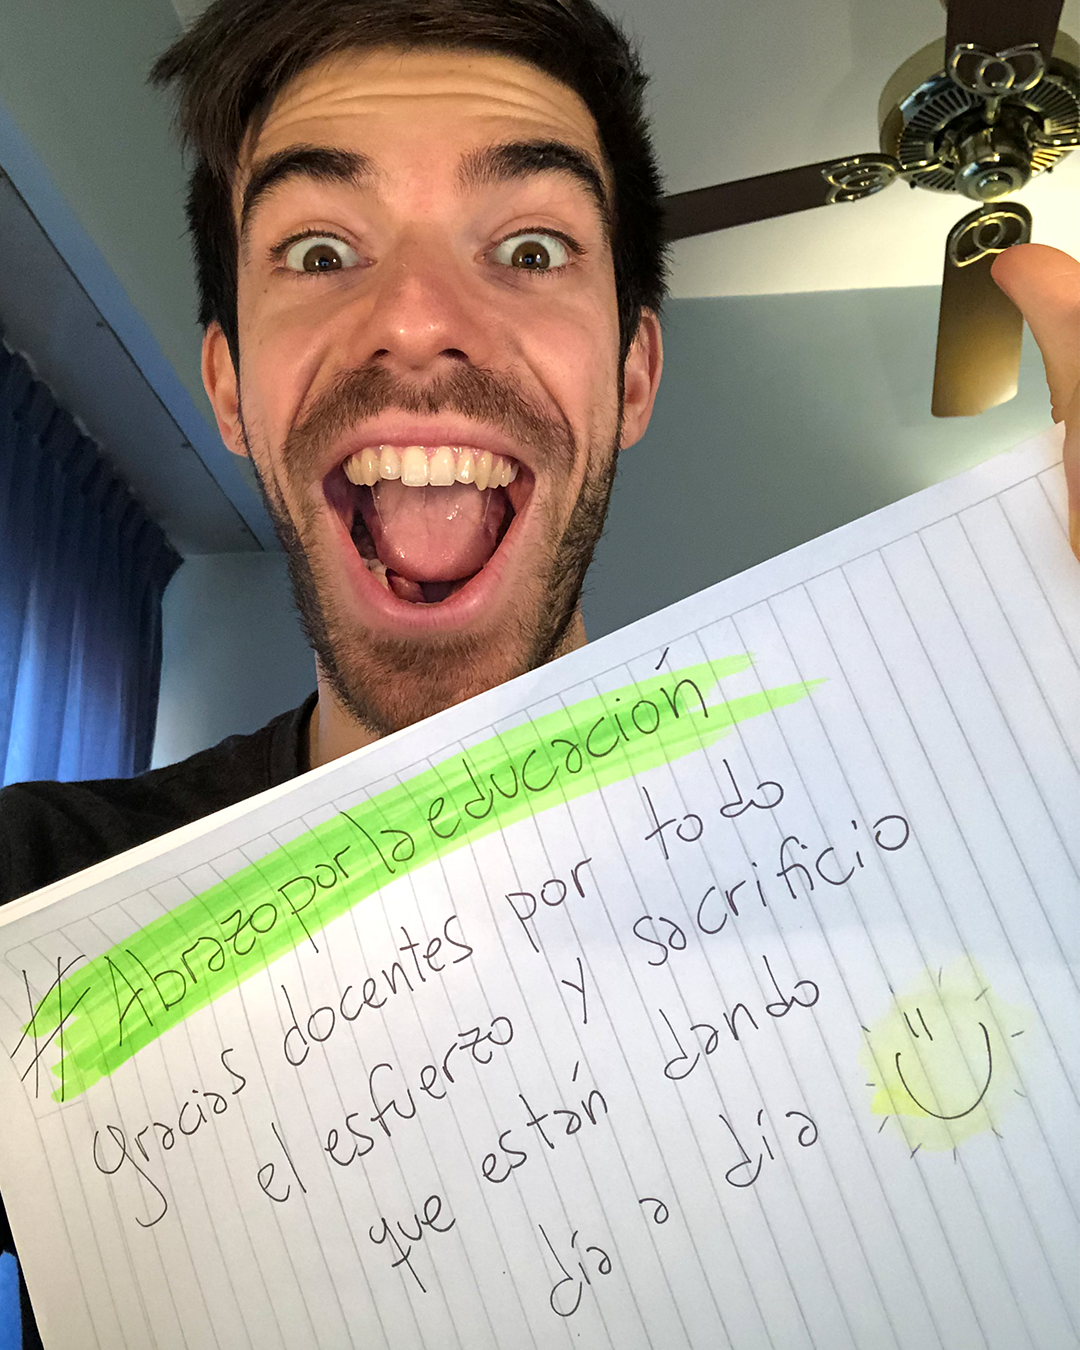 #Abrazo por la educación
gracias docentes por todo
el esfuerzo y sacrificio
que están dando
día a día